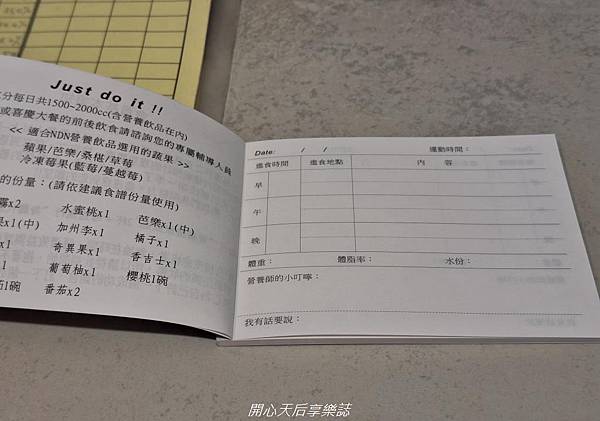 Just do it !!
分每日共1500~2000cc(含營養飲品在內)
或喜慶大餐的前後飲食請諮詢您的專屬輔導人員
<< 適合NDN營養飲品選用的蔬果 >>
蘋果/芭樂/桑椹/草莓
冷凍莓果(藍莓/蔓越莓)
的份量：(請依建議食譜份量使用)
x2 水蜜桃x1 芭樂x1(中)
x1(中) 加州李x1 橘子x1
x1 奇異果x1 香吉士x1
x1 葡萄柚x1 櫻桃1碗
1碗 番茄x2
Date: / / 運動時間：
進食時間 進食地點 內 容
早
午
晚
體重： 體脂率： 水份：
營養師的小叮嚀：
我有話要說：
開心天后享樂誌